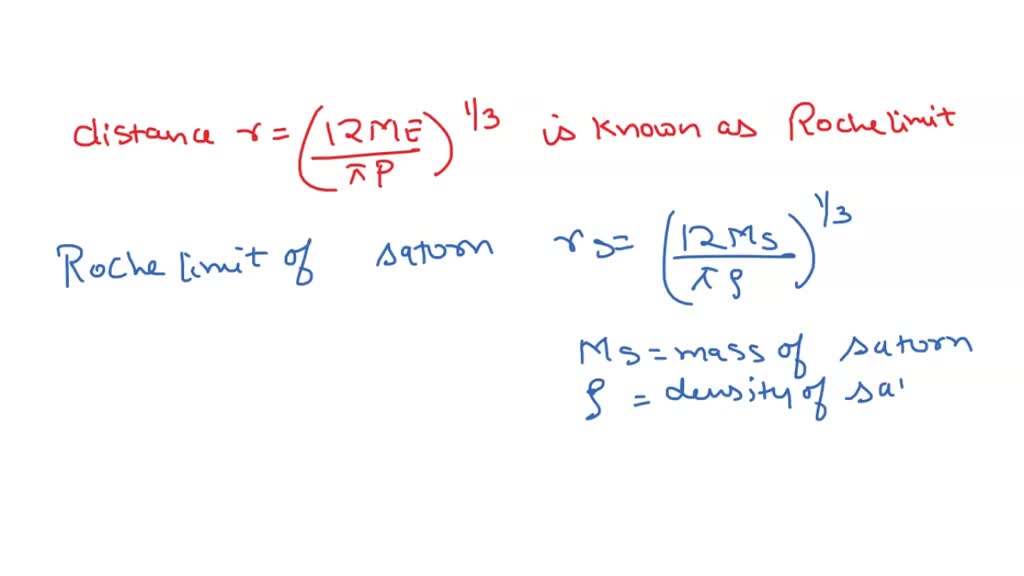 distance r = (12ME / πρ)^1/3 is known as Roche limit
Roche limit of satorn rs = (12Ms / πρ)^1/3
Ms = mass of satorn
ρ = density of sa